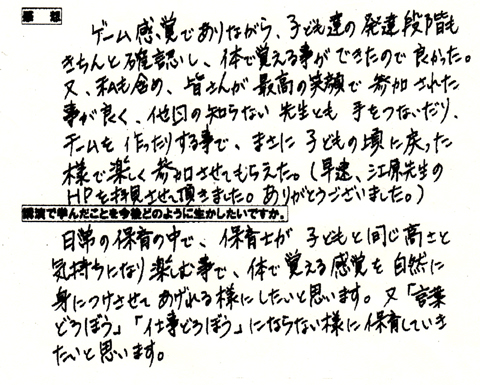 感想
ゲーム感覚でありながら、子ども達の発達段階も
きちんと確認し、体で覚える事ができたので良かった。
又、私も含め、皆さんが最高の笑顔で参加された
事が良く、他園の知らない先生とも手をつないだり、
チームを作ったりする事で、まさに子どもの頃に戻った
様で楽しく参加させてもらえた。(早速、江原先生の
HPを拝見させて頂きました。ありがとうございました。)
講演で学んだことを今後どのように生かしたいですか。
日常の保育の中で、保育士が子どもと同じ高さと
気持ちになり楽しむ事で、体で覚える感覚を自然に
身につけさせてあげれる様にしたいと思います。又「言葉
どろぼう」「仕事どろぼう」にならない様に保育していき
たいと思います。